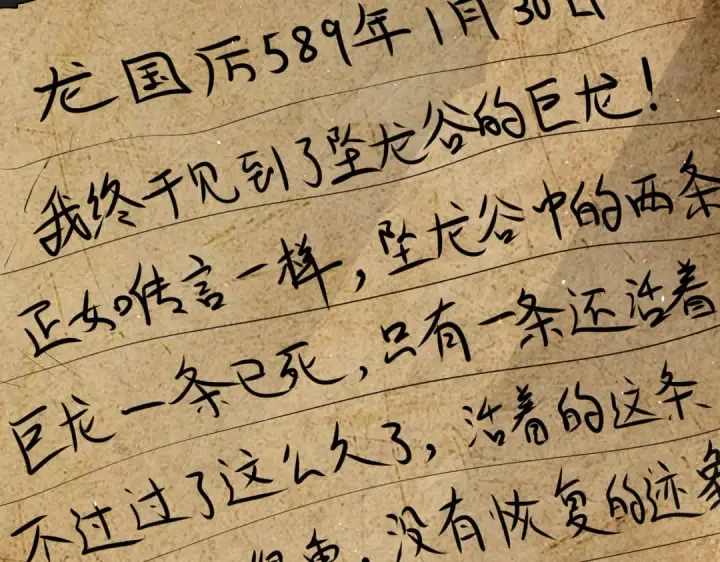 龙国历589年1月30日
我终于见到了坠龙谷的巨龙！
正如传言一样，坠龙谷中的两条
巨龙一条已死，只有一条还活着
不过过了这么久了，活着的这条
很重，没有恢复的迹象